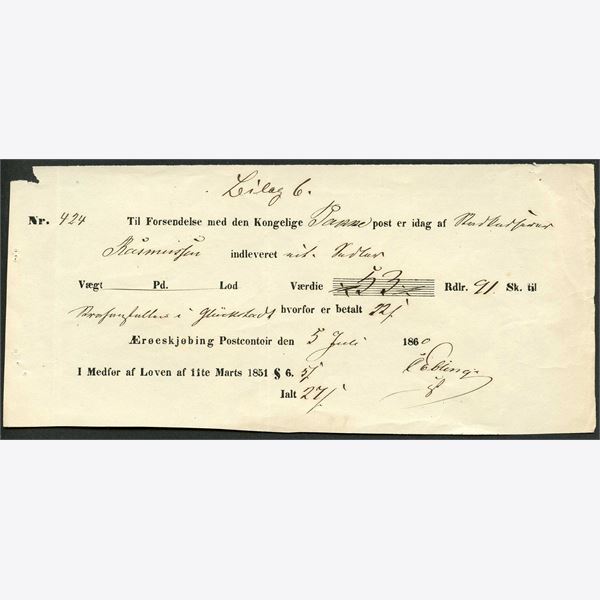 Bilag 6.
Nr. 424 Til Forsendelse med den Kongelige post er idag af
Rasmussen indleveret Sedler
Vægt Pd. Lod Værdie 53 Rdlr. 91 Sk. til
i Glückstadt hvorfor er betalt 22
Ærøeskjøbing Postcontoir den 5 Juli 1860
I Medfør af Loven af 11te Marts 1851 § 6. 5
Ialt 27